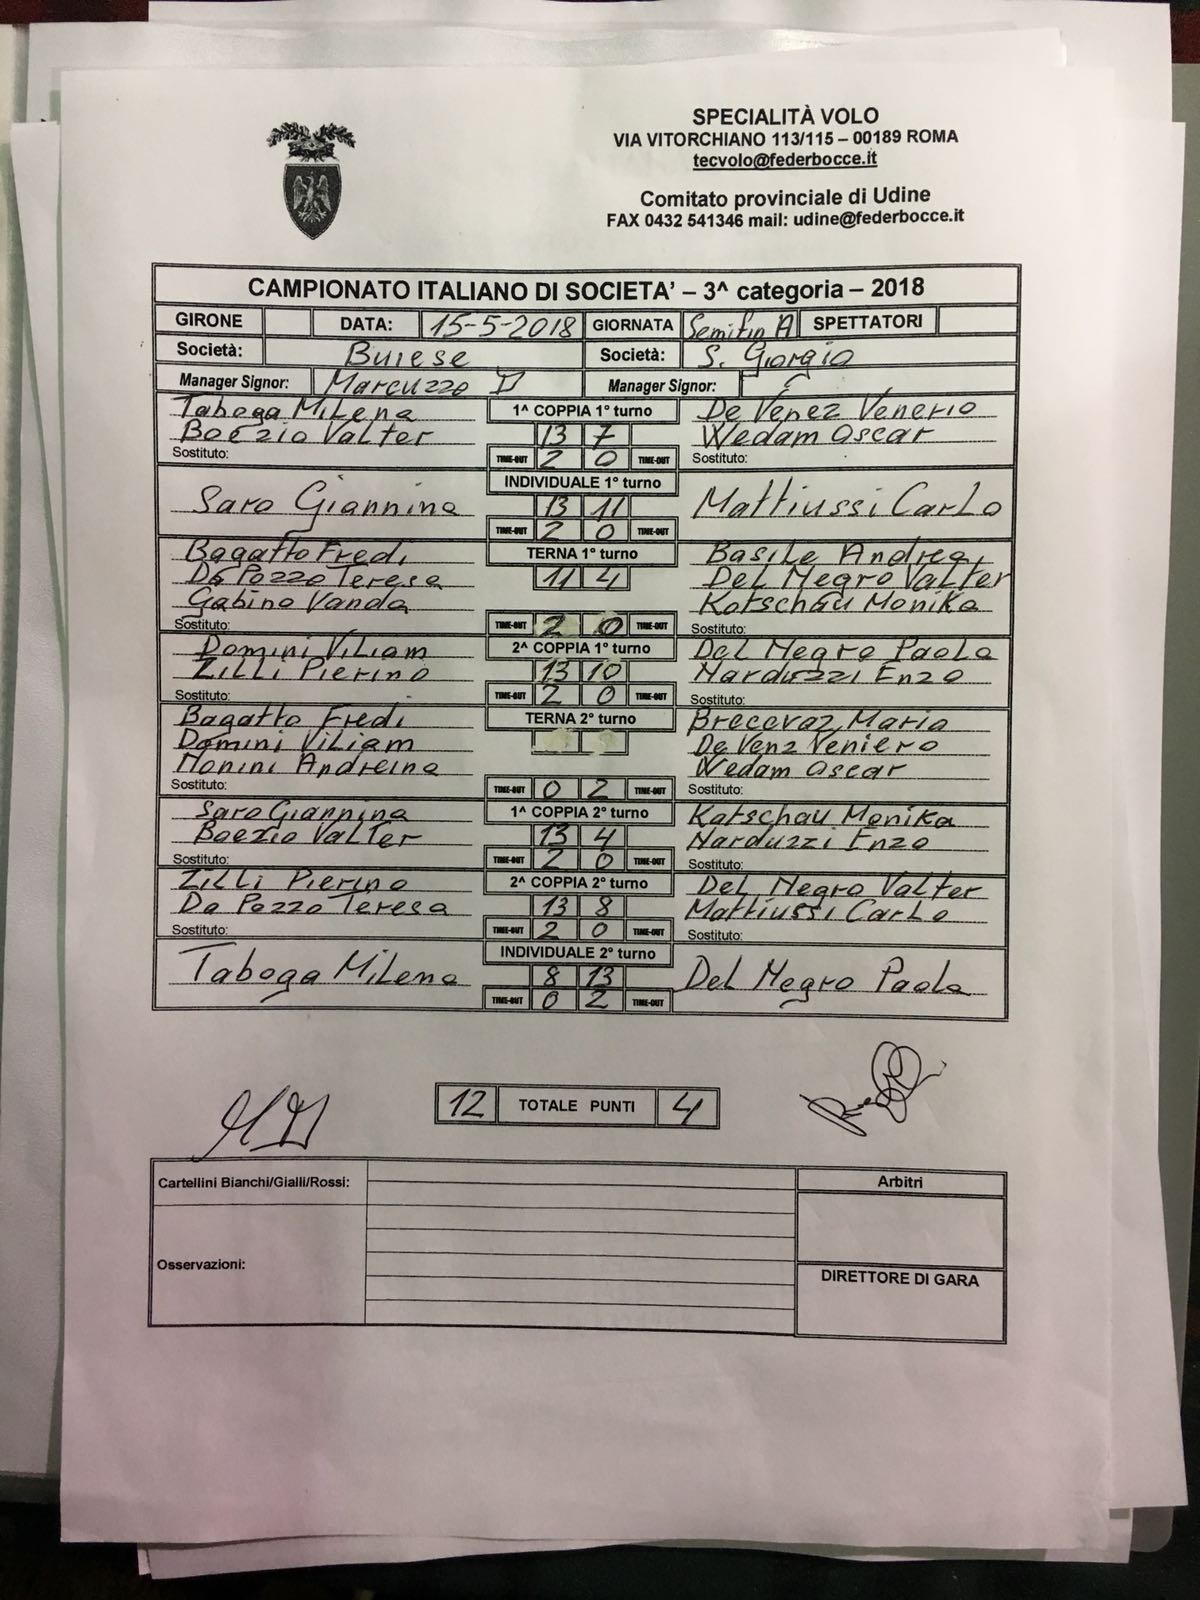 SPECIALITÀ VOLO
VIA VITORCHIANO 113/115 – 00189 ROMA
tecvolo@federbocce.it
Comitato provinciale di Udine
FAX 0432 541346 mail: udine@federbocce.it
CAMPIONATO ITALIANO DI SOCIETA' – 3^ categoria – 2018
GIRONE DATA: 15-5-2018 GIORNATA Semifin A SPETTATORI
Società: Buiese Società: S. Giorgio
Manager Signor: Marcuzzo D Manager Signor:
Taboga Milena 1^ COPPIA 1° turno De Venez Venerio
Boezio Valter 13 7 Wedam Oscar
Sostituto: TIME-OUT 2 0 TIME-OUT Sostituto:
INDIVIDUALE 1° turno
Saro Giannina 13 11 Mattiussi Carlo
TIME-OUT 2 0 TIME-OUT
Bagatto Fredi TERNA 1° turno Basile Andrea
Da Pozzo Teresa 11 4 Del Negro Valter
Gabino Vanda Kotschau Monika
Sostituto: TIME-OUT 2 0 TIME-OUT Sostituto:
Domini Viliam 2^ COPPIA 1° turno Del Negro Paola
Zilli Pierino 13 10 Narduzzi Enzo
Sostituto: TIME-OUT 2 0 TIME-OUT Sostituto:
Bagatto Fredi TERNA 2° turno Brecevaz Maria
Domini Viliam De Venz Veniero
Monini Andreina Wedam Oscar
Sostituto: TIME-OUT 0 2 TIME-OUT Sostituto:
Saro Giannina 1^ COPPIA 2° turno Kotschau Monika
Boezio Valter 13 4 Narduzzi Enzo
Sostituto: TIME-OUT 2 0 TIME-OUT Sostituto:
Zilli Pierino 2^ COPPIA 2° turno Del Negro Valter
Da Pozzo Teresa 13 8 Mattiussi Carlo
Sostituto: TIME-OUT 2 0 TIME-OUT Sostituto:
INDIVIDUALE 2° turno
Taboga Milena 8 13 Del Negro Paola
TIME-OUT 0 2 TIME-OUT
12 TOTALE PUNTI 4
Cartellini Bianchi/Gialli/Rossi: Arbitri
Osservazioni:
DIRETTORE DI GARA